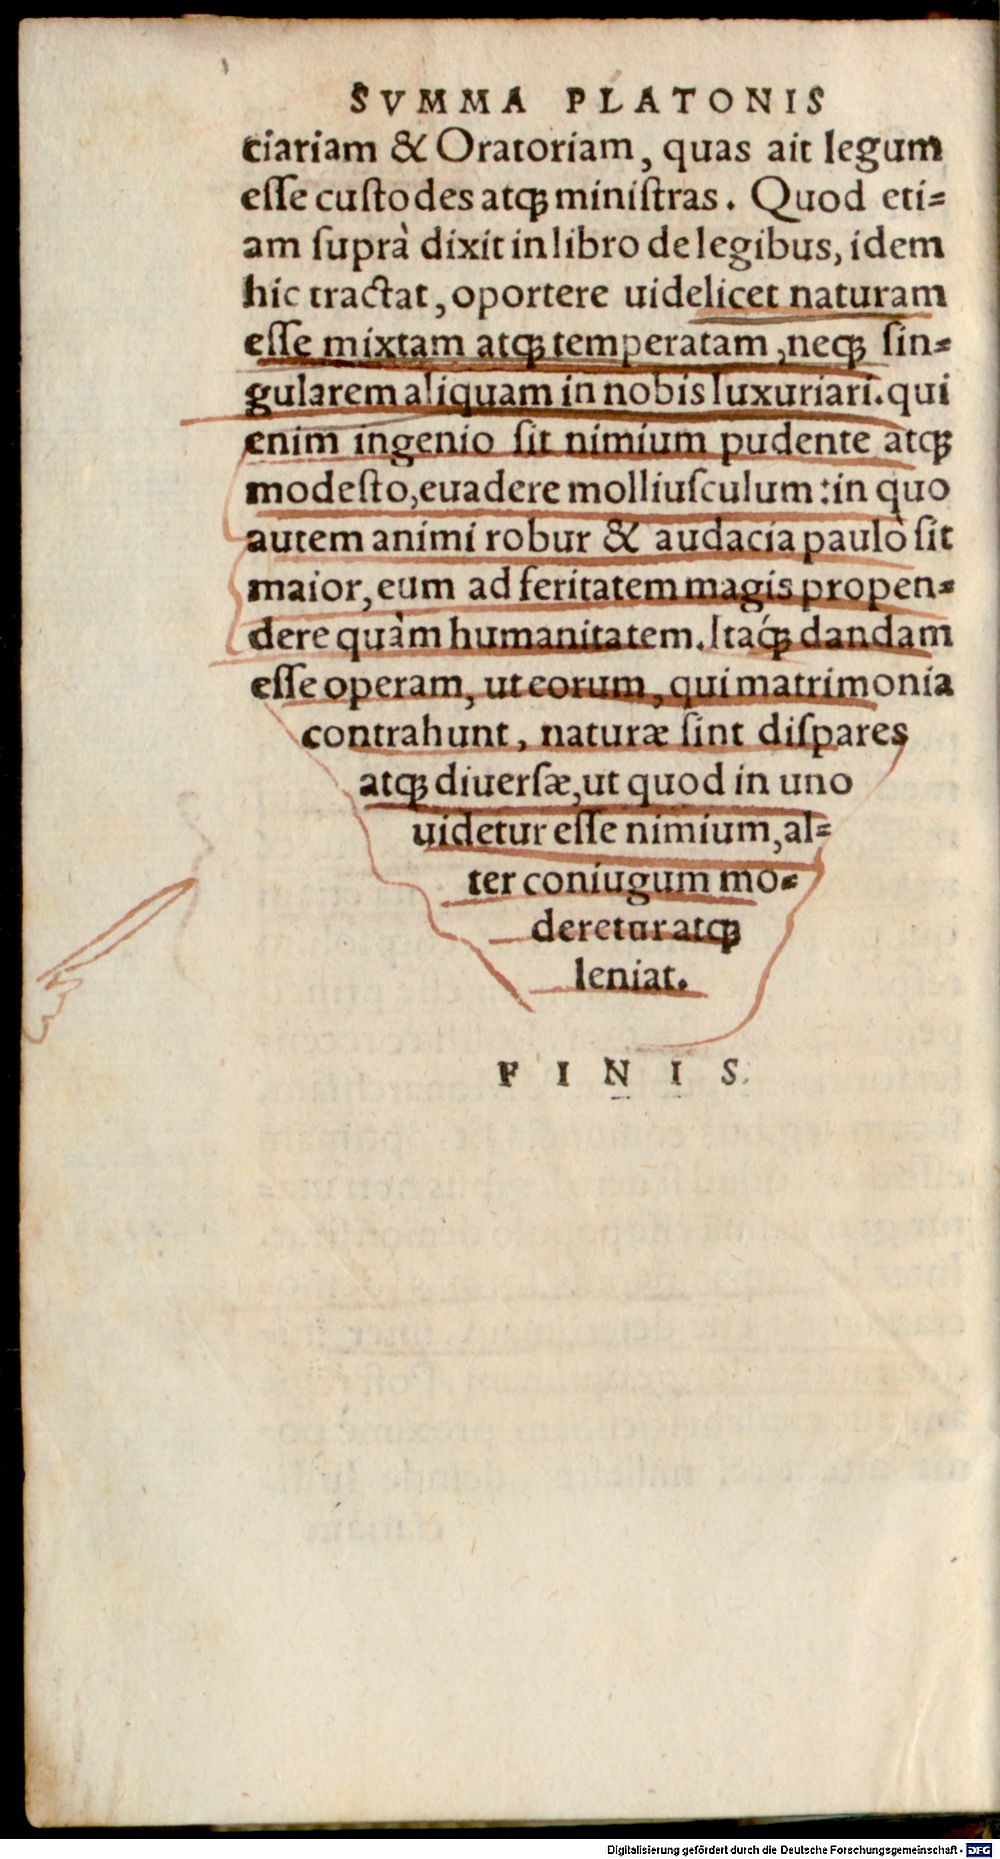 SVMMA PLATONIS
ciariam & Oratoriam, quas ait legum
eſſe cuſtodes atq́ꝫ miniſtras. Quod eti=
am ſuprà dixit in libro de legibus, idem
hic tractat, oportere uidelicet naturam
eſſe mixtam atqꝫ temperatam, neqꝫ ſin=
gularem aliquam in nobis luxuriari. qui
enim ingenio ſit nimium pudente atqꝫ
modeſto, euadere molliuſculum: in quo
autem animi robur & audacia paulò ſit
maior, eum ad feritatem magis propen=
dere quàm humanitatem. Itaq́ꝫ dandam
eſſe operam, ut eorum, qui matrimonia
contrahunt, naturæ ſint diſpares
atqꝫ diuerſæ, ut quod in uno
uidetur eſſe nimium, al=
ter coniugum mo=
deretur atqꝫ
leniat.
F I N I S.
Digitalisierung gefördert durch die Deutsche Forschungsgemeinschaft - DFG